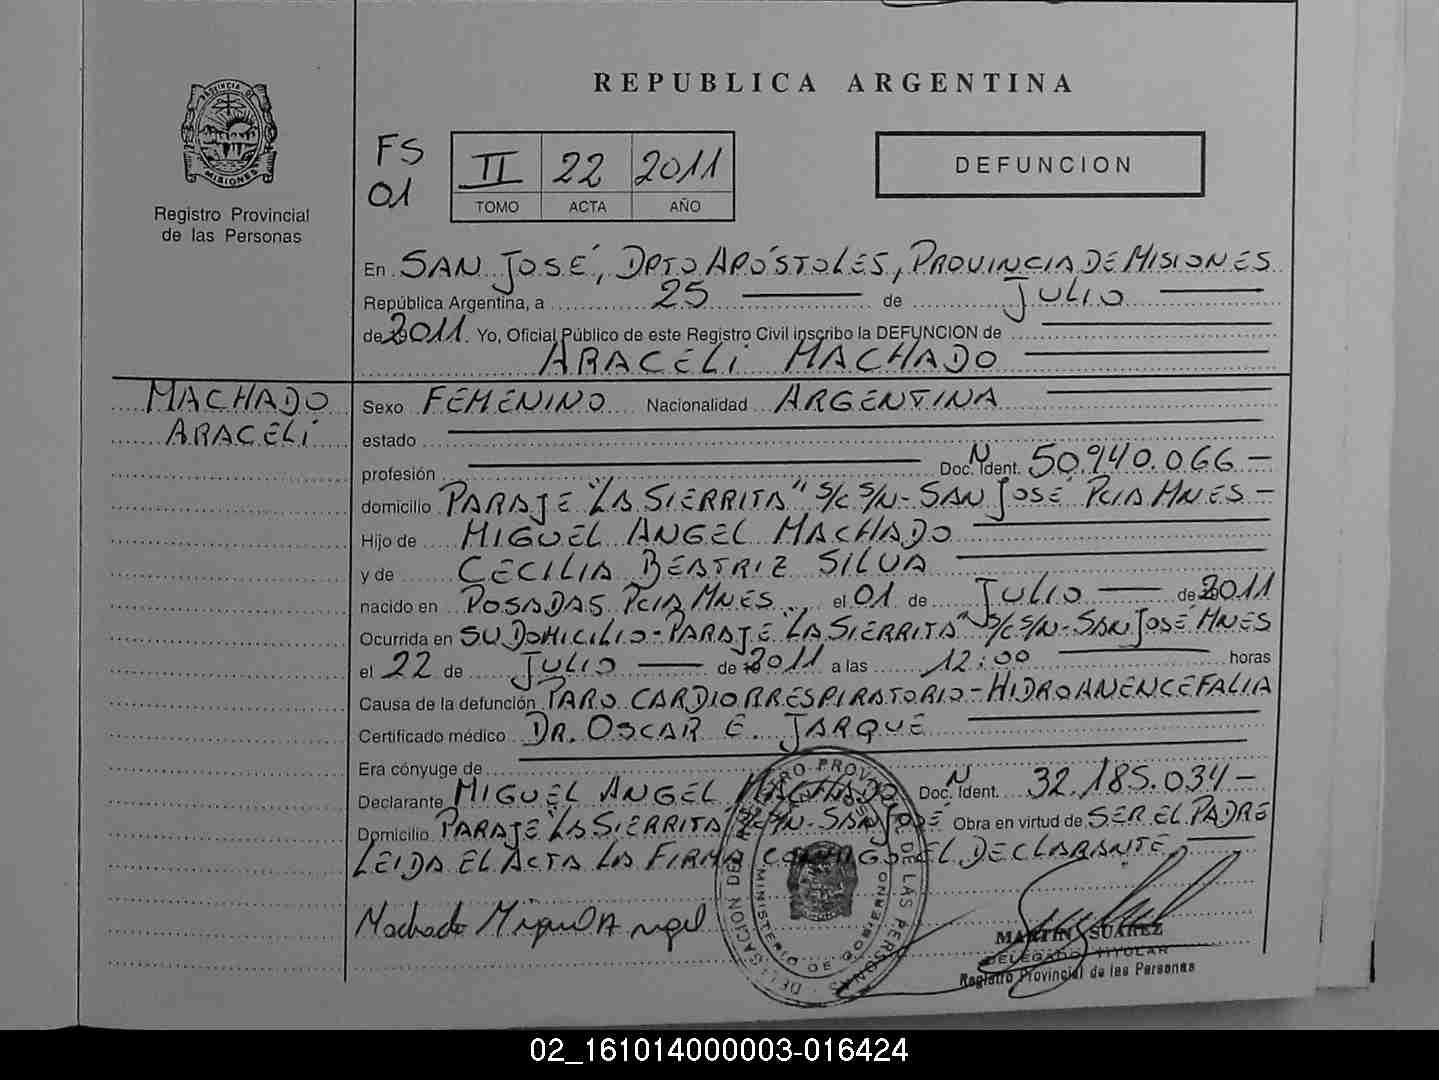 REPUBLICA ARGENTINA
PROVINCIA DE
MISIONES
Registro Provincial
de las Personas
FS
01
II 22 2011
TOMO ACTA AÑO
DEFUNCION
En SAN JOSÉ, DPTO APÓSTOLES, PROVINCIA DE MISIONES
República Argentina, a 25 de JULIO
de 2011. Yo, Oficial Público de este Registro Civil inscribo la DEFUNCION de
ARACELI MACHADO
MACHADO
ARACELI
Sexo FEMENINO Nacionalidad ARGENTINA
estado
profesión Doc. N Ident. 50.940.066 –
domicilio PARAJE "LA SIERRITA" S/C S/N - SAN JOSÉ PCIA MNES –
Hijo de MIGUEL ANGEL MACHADO
y de CECILIA BEATRIZ SILVA
nacido en POSADAS PCIA MNES el 01 de JULIO de 2011
Ocurrida en SU DOMICILIO - PARAJE "LA SIERRITA" S/C S/N - SAN JOSÉ MNES
el 22 de JULIO de 2011 a las 12:00 horas
Causa de la defunción PARO CARDIORRESPIRATORIO - HIDROANENCEFALIA
Certificado médico DR. OSCAR E. JARQUE
Era cónyuge de
Declarante MIGUEL ANGEL MACHADO Doc. N Ident. 32.185.034 –
Domicilio PARAJE "LA SIERRITA" S/C S/N - SAN JOSÉ Obra en virtud de SER EL PADRE
LEIDA EL ACTA LA FIRMA CONMIGO EL DECLARANTE
Machado Miguel Angel
DELEGACION DEL REGISTRO PROVINCIAL DE LAS PERSONAS
MINISTERIO DE GOBIERNO
MARTIN SUAREZ
DELEGADO TITULAR
Registro Provincial de las Personas
02_161014000003-016424